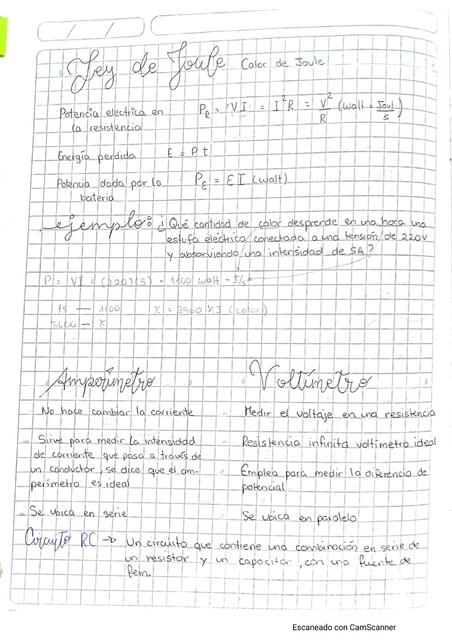 Ley de Joule Calor de Joule
Potencia electrica en la resistencia P_R = VI = I²R = V²/R (Watt = Joul/s)
Energía perdida E = Pt
Potencia dada por la bateria P_E = EI (Watt)
ejemplo: ¿Qué cantidad de calor desprende en una hora una
estufa electrica conectada a una tensión de 220V
y absorviendo una intensidad de 5A?
P = VI = (220)(5) = 1100 Watt - J/s
1s — 1100 x = 3960 KJ (calor)
3600 — x
Amperímetro
No hace cambiar la corriente
Sirve para medir la intensidad
de corriente que pasa a través de
un conductor, se dice que el am-
perímetro es ideal
Se ubica en serie
Voltímetro
Medir el voltaje en una resistencia
Resistencia infinita voltimetro ideal
Emplea para medir la diferencia de
potencial
Se ubica en paralelo
Circuito RC → Un circuito que contiene una combinación en serie de
un resistor y un capacitor, con una fuente de
fem.
Escaneado con CamScanner